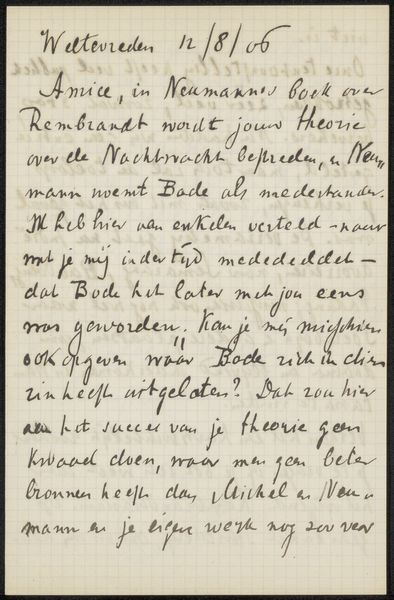 Weltevreden 12/8/06
Amice, in Neumanns boek over
Rembrandt wordt jouw theorie
over de Nachtwacht besproken, en Neu„
mann noemt Bode als medestander.
Ik heb hier aan enkelen verteld – naar
wat je mij indertijd mededeeldet –
dat Bode het later met jou eens
was geworden. Kan je mij misschien
ook opgeven wäär Bode zich in dien
zin heeft uitgelaten? Dat zou hier
aan het succes van je theorie geen
kwaad doen, waar men geen beter
bronnen heeft dan Michel en Neu„
mann en je eigen werk nog zoo